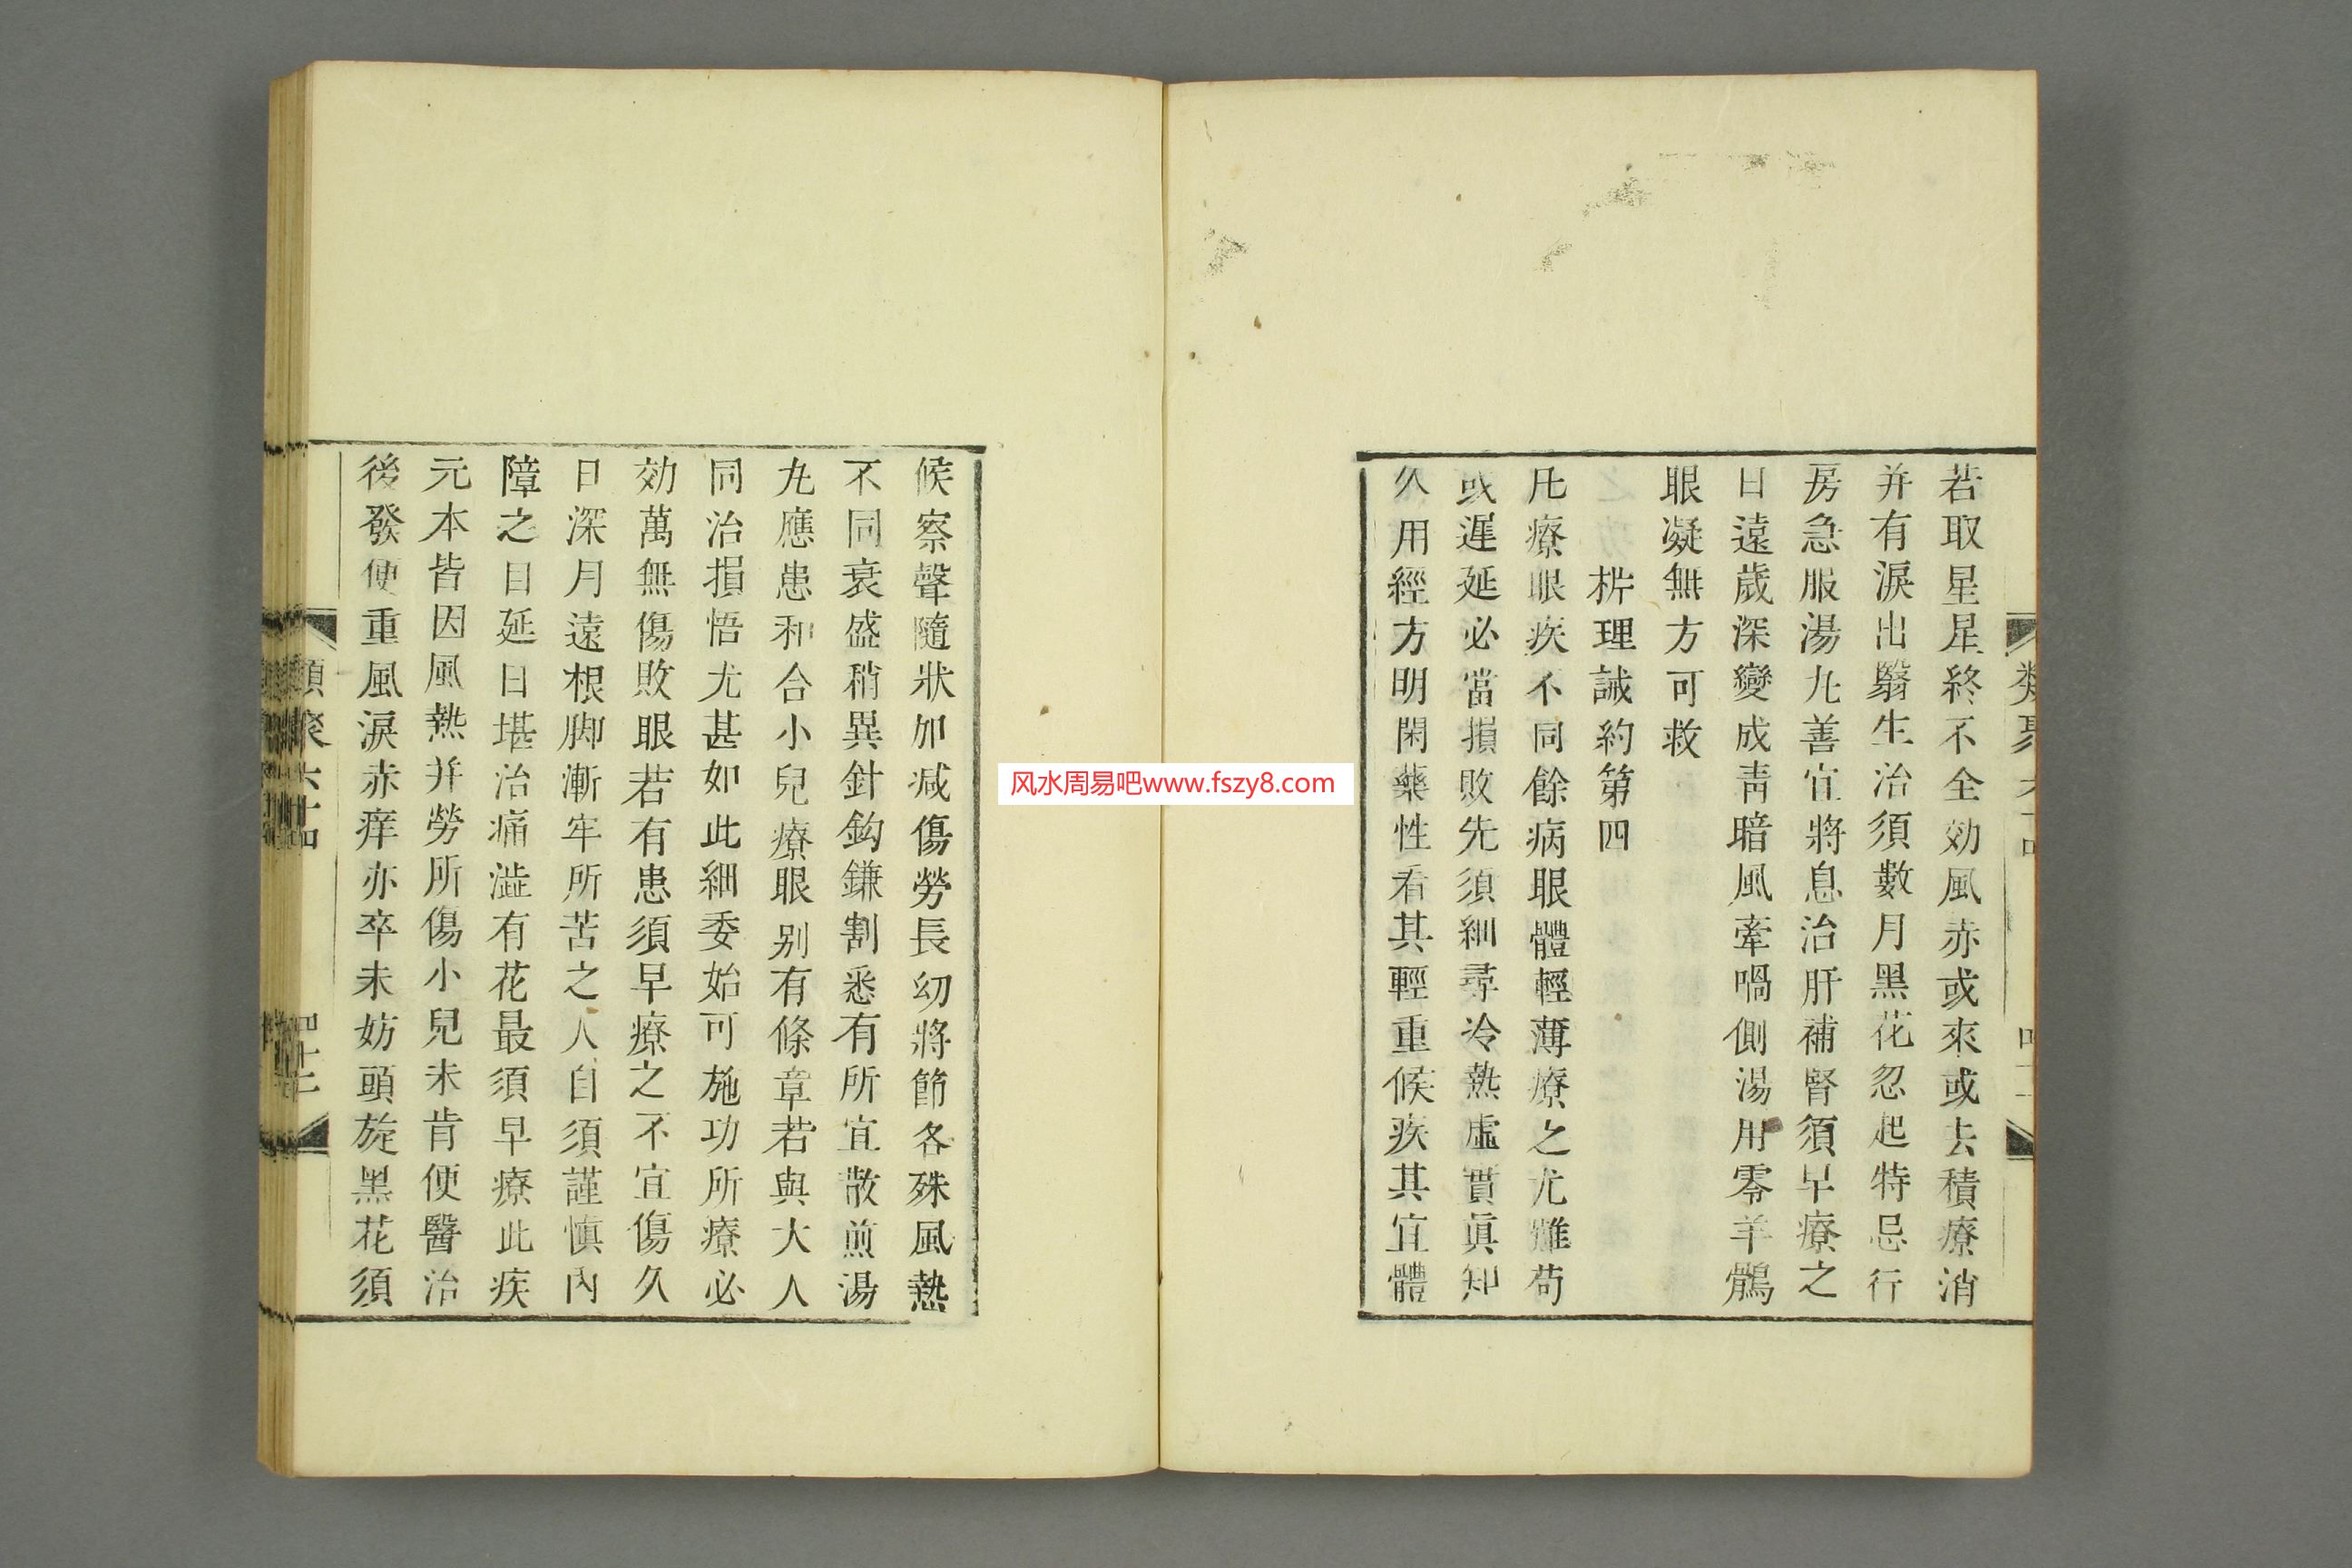 若取星星終不全効風赤或來或去積療消
并有淚出翳生治須數月黑花忽起特忌行
房急服湯九善宜將息治肝補腎須早療之
日遠歲深變成靑暗風牽喎側湯用零羊鶻
眼凝無方可救
枿理誡約第四
凡療眼疾不同餘病眼體輕薄療之尤難苟
或遲延必當損敗先須細尋冷熱虛實眞知
久用經方明閑藥性看其輕重候疾其宜體
候察聲隨狀加减傷勞長幼將節各殊風熱
不同衰盛稍異針鈎鎌割悉有所宜散煎湯
九應患和合小兒療眼别有條章若與大人
同治損悟尤甚如此細委始可施功所療必
効萬無傷敗眼若有患須早療之不宜傷久
日深月遠根脚漸牢所苦之人自須謹愼內
障之日延日堪治痛澁有花最須早療此疾
元本皆因風熱并勞所傷小兒未肯便醫治
後發便重風淚赤痒亦卒未妨頭旋黑花須
類聚六十四
四十二
风水周易吧www.fszy8.com